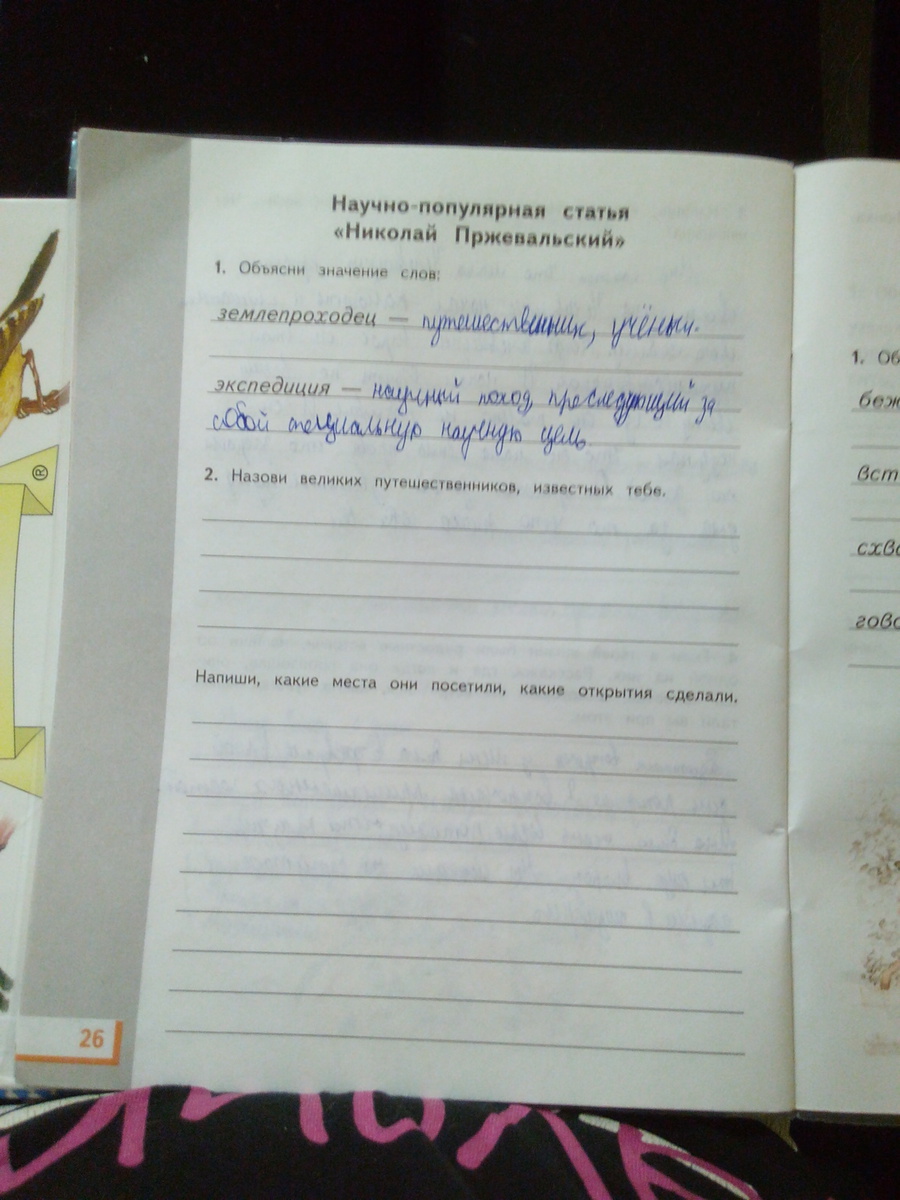 Научно-популярная статья
«Николай Пржевальский»
1. Объясни значение слов:
землепроходец — путешественник, учёный.
экспедиция — научный поход, преследующий за
собой специальную научную цель.
2. Назови великих путешественников, известных тебе.
Напиши, какие места они посетили, какие открытия сделали.
26
®
1. Об
беж
вст
схва
гово